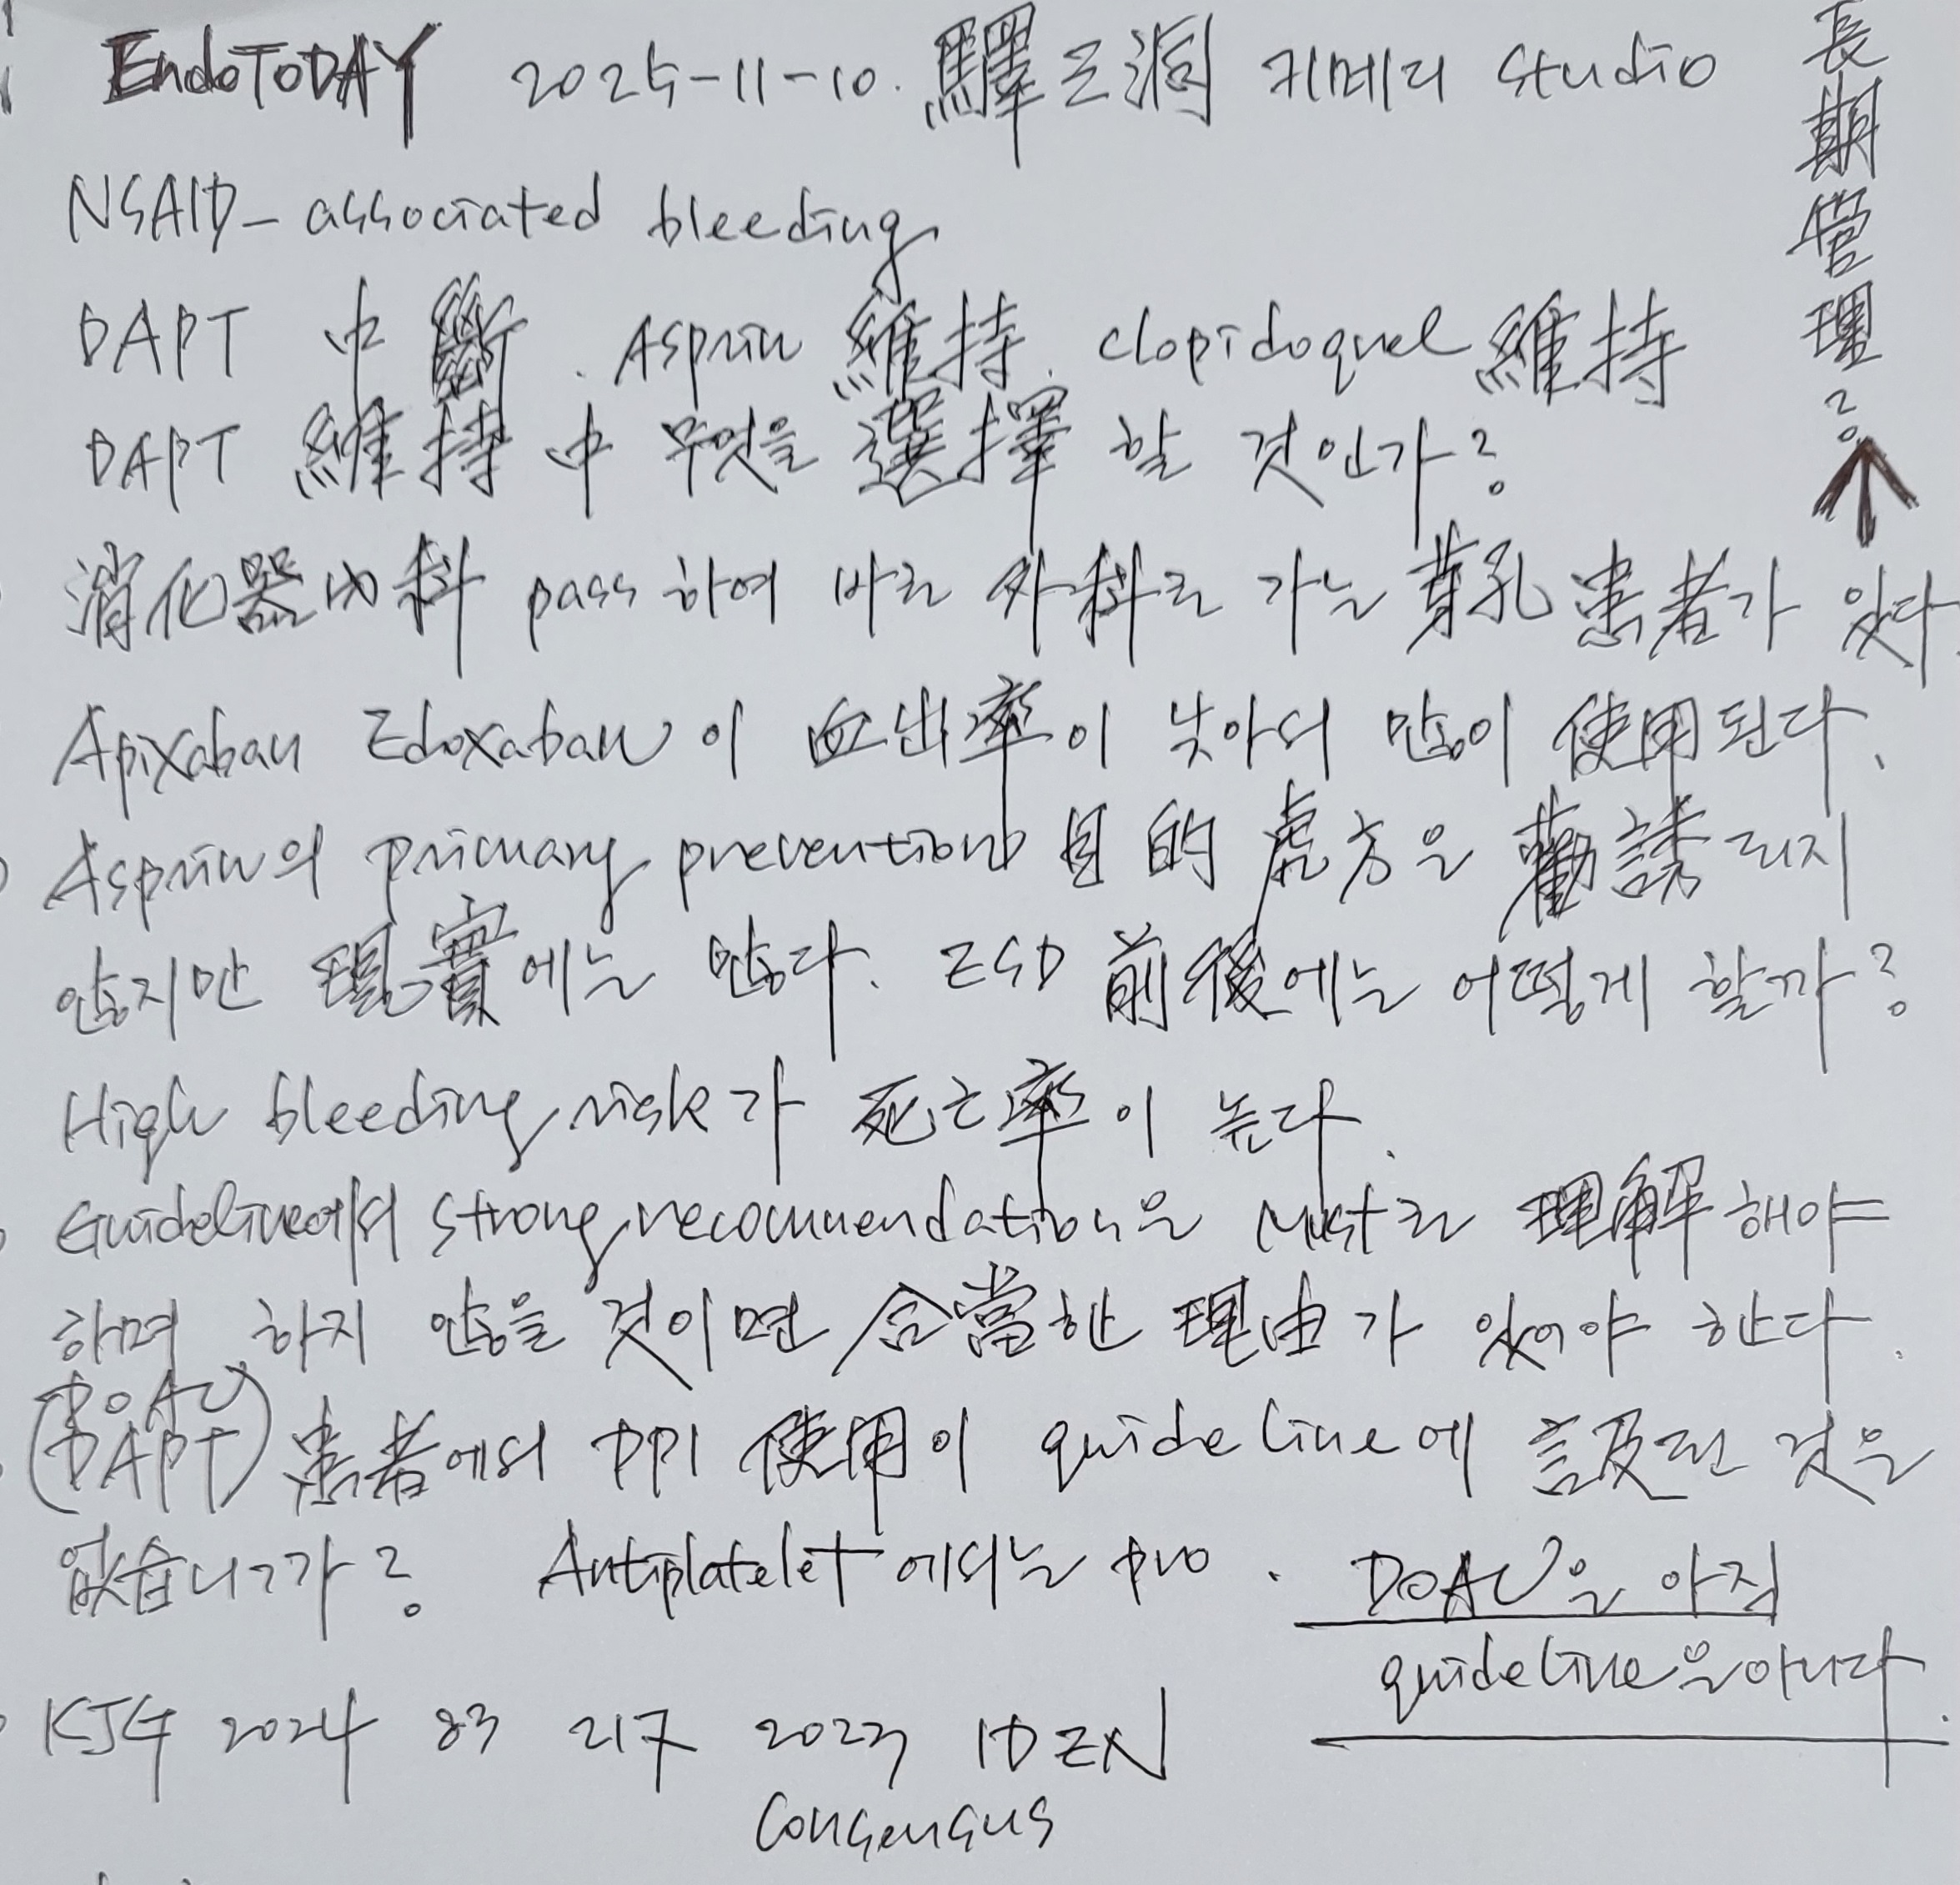 EndoTODAY 2025-11-10. 驛三洞 키메디 Studio
長期管理?
NSAID-associated bleeding
DAPT 中斷. Asprin 維持. clopidogrel 維持
DAPT 維持 中 무엇을 選擇 할 것인가?
消化器內科 pass 하여 바로 外科로 가는 穿孔 患者가 있다.
Apixaban Edoxaban이 血出率이 낮아서 많이 使用된다.
Asprin의 primary prevention 目的 處方은 勸誘되지
않지만 現實에는 많다. ESD 前後에는 어떻게 할까?
High bleeding risk가 死亡率이 높다.
Guideline에서 strong recommendation은 Must로 理解해야
하며 하지 않을 것이면 合當한 理由가 있어야 한다.
(DOAC DAPT) 患者에서 PPI 使用이 guideline에 言及된 것은
없습니가? Antiplatelet 에서는 pro. DOAC은 아직
guideline은 아니다.
KJG 2024 83 217 2023 IDEN
Consensus